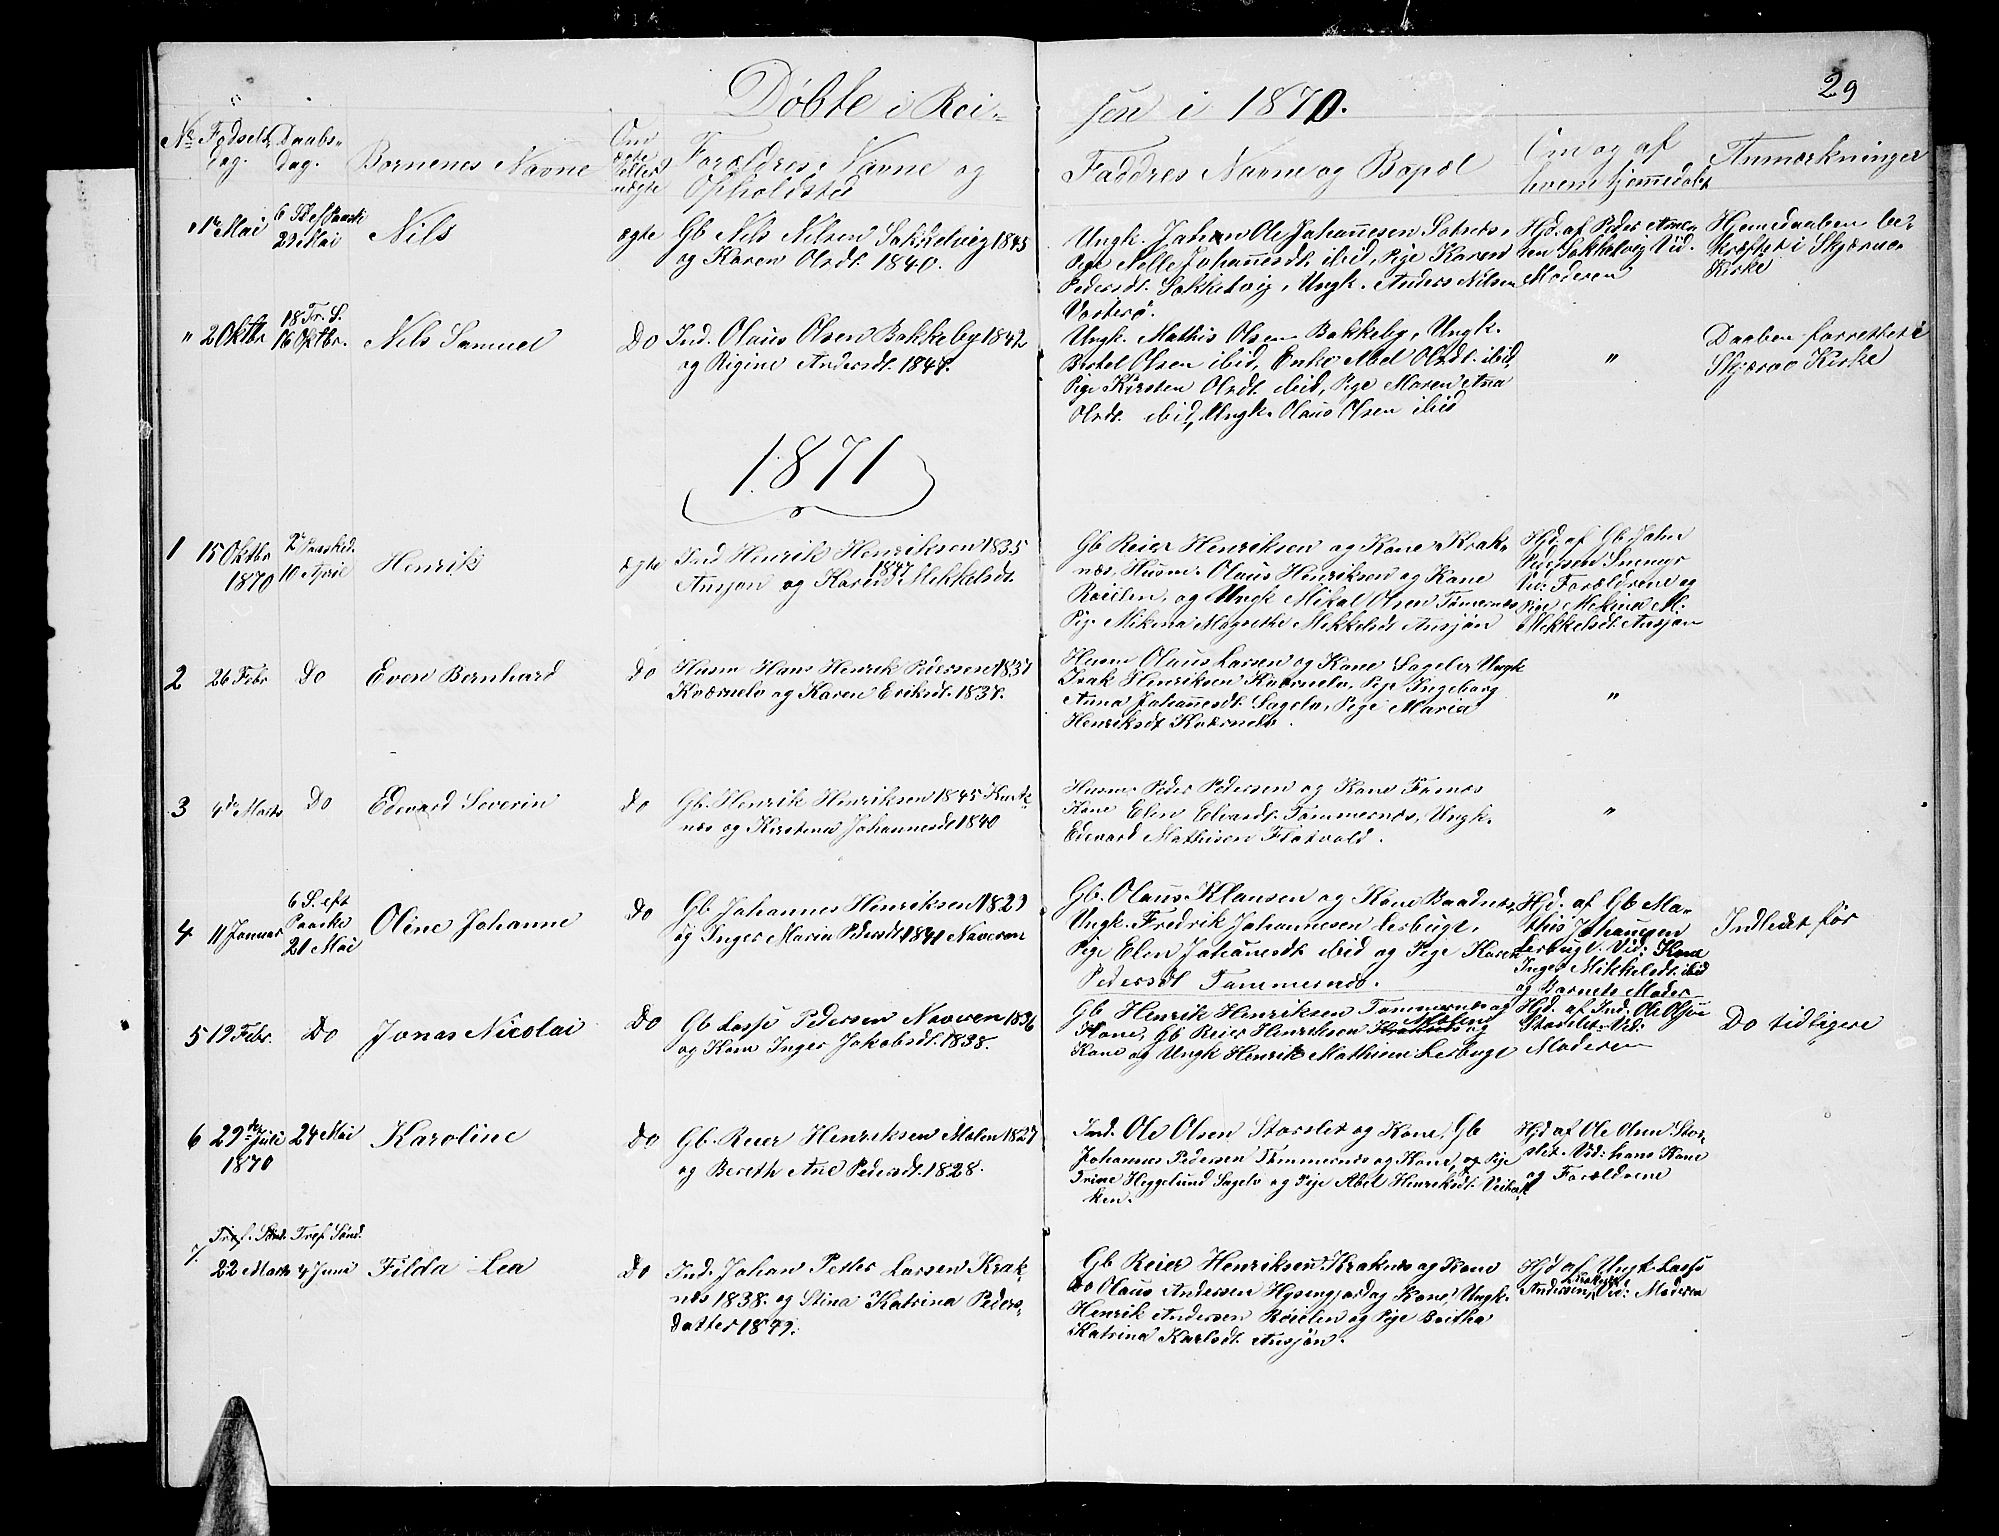 29
Døbte i Rei-
sen i 1870.
No Fødsels dag. Daabs- Dag. Børnenes Navne Om ægte eller uægte Forældres Navne og Opholdsted
Faddres Navne og Bopæl Om og af hvem hjemmedøbt Anmærkninger
" 1ste Mai
6 Sd ef Paaske
29 Mai
Nils
ægte
Gb Nils Nilsen Sokkelvig 1845
og Karen Olsdt. 1840.
Ungk. Johan Ole Johannesen
Pige Nelle Johannesdt. ibid, Pige Karen
Pedersdt. Sokkelvig, Ungk. Anders Nilsen
Vorterø.
Hjd. af Peder
sen Sokkelvig Vid.
Moderen
Hjemedaaben be-
kræftet i Skjærvø
Kirke
" 2 Oktbr
18 Tr. S.
16 Oktbr.
Nils Samuel
Do
Ind. Olaus Olsen Bakkeby 1842
og Rigine Andersdt.
Ungk. Mathis Olsen Bakkeby, Ungk.
Bertel Olsen ibid, Enke Abel Olsdt. ibid,
Pige Kirsten Olsdt. ibid, Pige Maren Ana
Olsdt. ibid, Ungk. Olaus Olsen ibid
"
Daaben forrettet i
Skjærvø Kirke
1871
1
15 Oktbr
1870
2 Paasked.
10 April
Henrik
ægte
Ind Henrik Henriksen 1835
1847
Ansjøn og Karen Mikkelsdt.
Gb Reier Henriksen og Kone Krak-
næs, Husm. Olaus Henriksen og Kone
Røielen, og Ungk Mikal Olsen Tømernæs
Pige Mikena Magrethe Mikkelsdt Ansjøn
Hjd. af Gb John
Pedersen
Vid: Forældrene og
Pige Mekina M:
Mikkelsdt. Ansjøn
2
26 Febr
Do
Even Bernhard
Do
Husm Hans Henrik Pedersen 1837
Kværnelv og Karen Eriksdt. 1837.
Husm Olaus Larsen og Kone Sagelv Ungk
Isak Henriksen Kværnelv, Pige Ingeborg
Anna Johannesdt. Sagelv, Pige Maria
Henriksdt Kværnelv.
"
3
4de Marts
Do
Edevard Severin
Do
Gb. Henrik Henriksen 1845 Krak-
næs og Kirstina Johannesdt 1840
Husm. Peder Pedersen og Kone
Kone Elen Edvardt. Tømmernæs, Ungk.
Edevard Mathisen Flatvold.
"
4
11 Januar
6 S. eft
Paaske
21 Mai
Oline Johanne
Do
Gb Johannes Henriksen 1829
og Inger Maria Pedersdt 1841 Naveren
Gb. Olaus Klausen og Kone Baadnæs,
Ungk. Fredrik Johannesen Lerbugt,
Pige Elen Johanesdt. ibid og Pige Karen
Pedersdt Tømmernæs.
Hjd. af Gb Ma-
this Johannesen
Lerbugt. Vid: Kone
Inger Mikkelsdt. ibid
og Barnets Moder
Indledet før
5
19 Febr.
Do
Jonas Nicolai
Do
Gb Lasse Pedersen Naveren 1836
og Kone Inger Jakobsdt. 1838.
Gb Henrik Henriksen Tømmernæs og
Kone, Gb Reier Henriksen Molen og
Kone og Ungk Henrik Mathisen Lerbugt
Hjd. af Ind. Ole Olsen
Storslet. Vid:
Moderen
Do tidligere
6
29de Juli
1870
24 Mai
Karoline
Do
Gb. Reier Henriksen Molen 1827
og Bereth Ane Pedersdt. 1828.
Ind. Ole Olsen Storslet og Kone, Gb
Johannes Pedersen Tømmernæs og Kone, og Pige
Trine Heggelund Sagelv og Pige Abel Henriksdt. Veibak
ken.
Hjd af Ole Olsen Stor-
slet. Vid: hans Kone
og Forældrene
7.
Tref. Sønd. Tref Sønd.
22 Marts 4 Juni
Filda Lea
Do
Ind. Johan Petter Larsen Krak-
næs 1838. og Stina Katrina Peders-
datter 1849.
Gb Reier Henriksen Kraknæs og Kone
Do Olaus Andersen Hysingjord og Kone, Ungk.
Henrik Andersen Røielen og Pige Beritha
Katrina Karlsdt. Ansjøn.
Hjd af Ungk Lasse
Andersen, Kraknæs Vid: Moderen